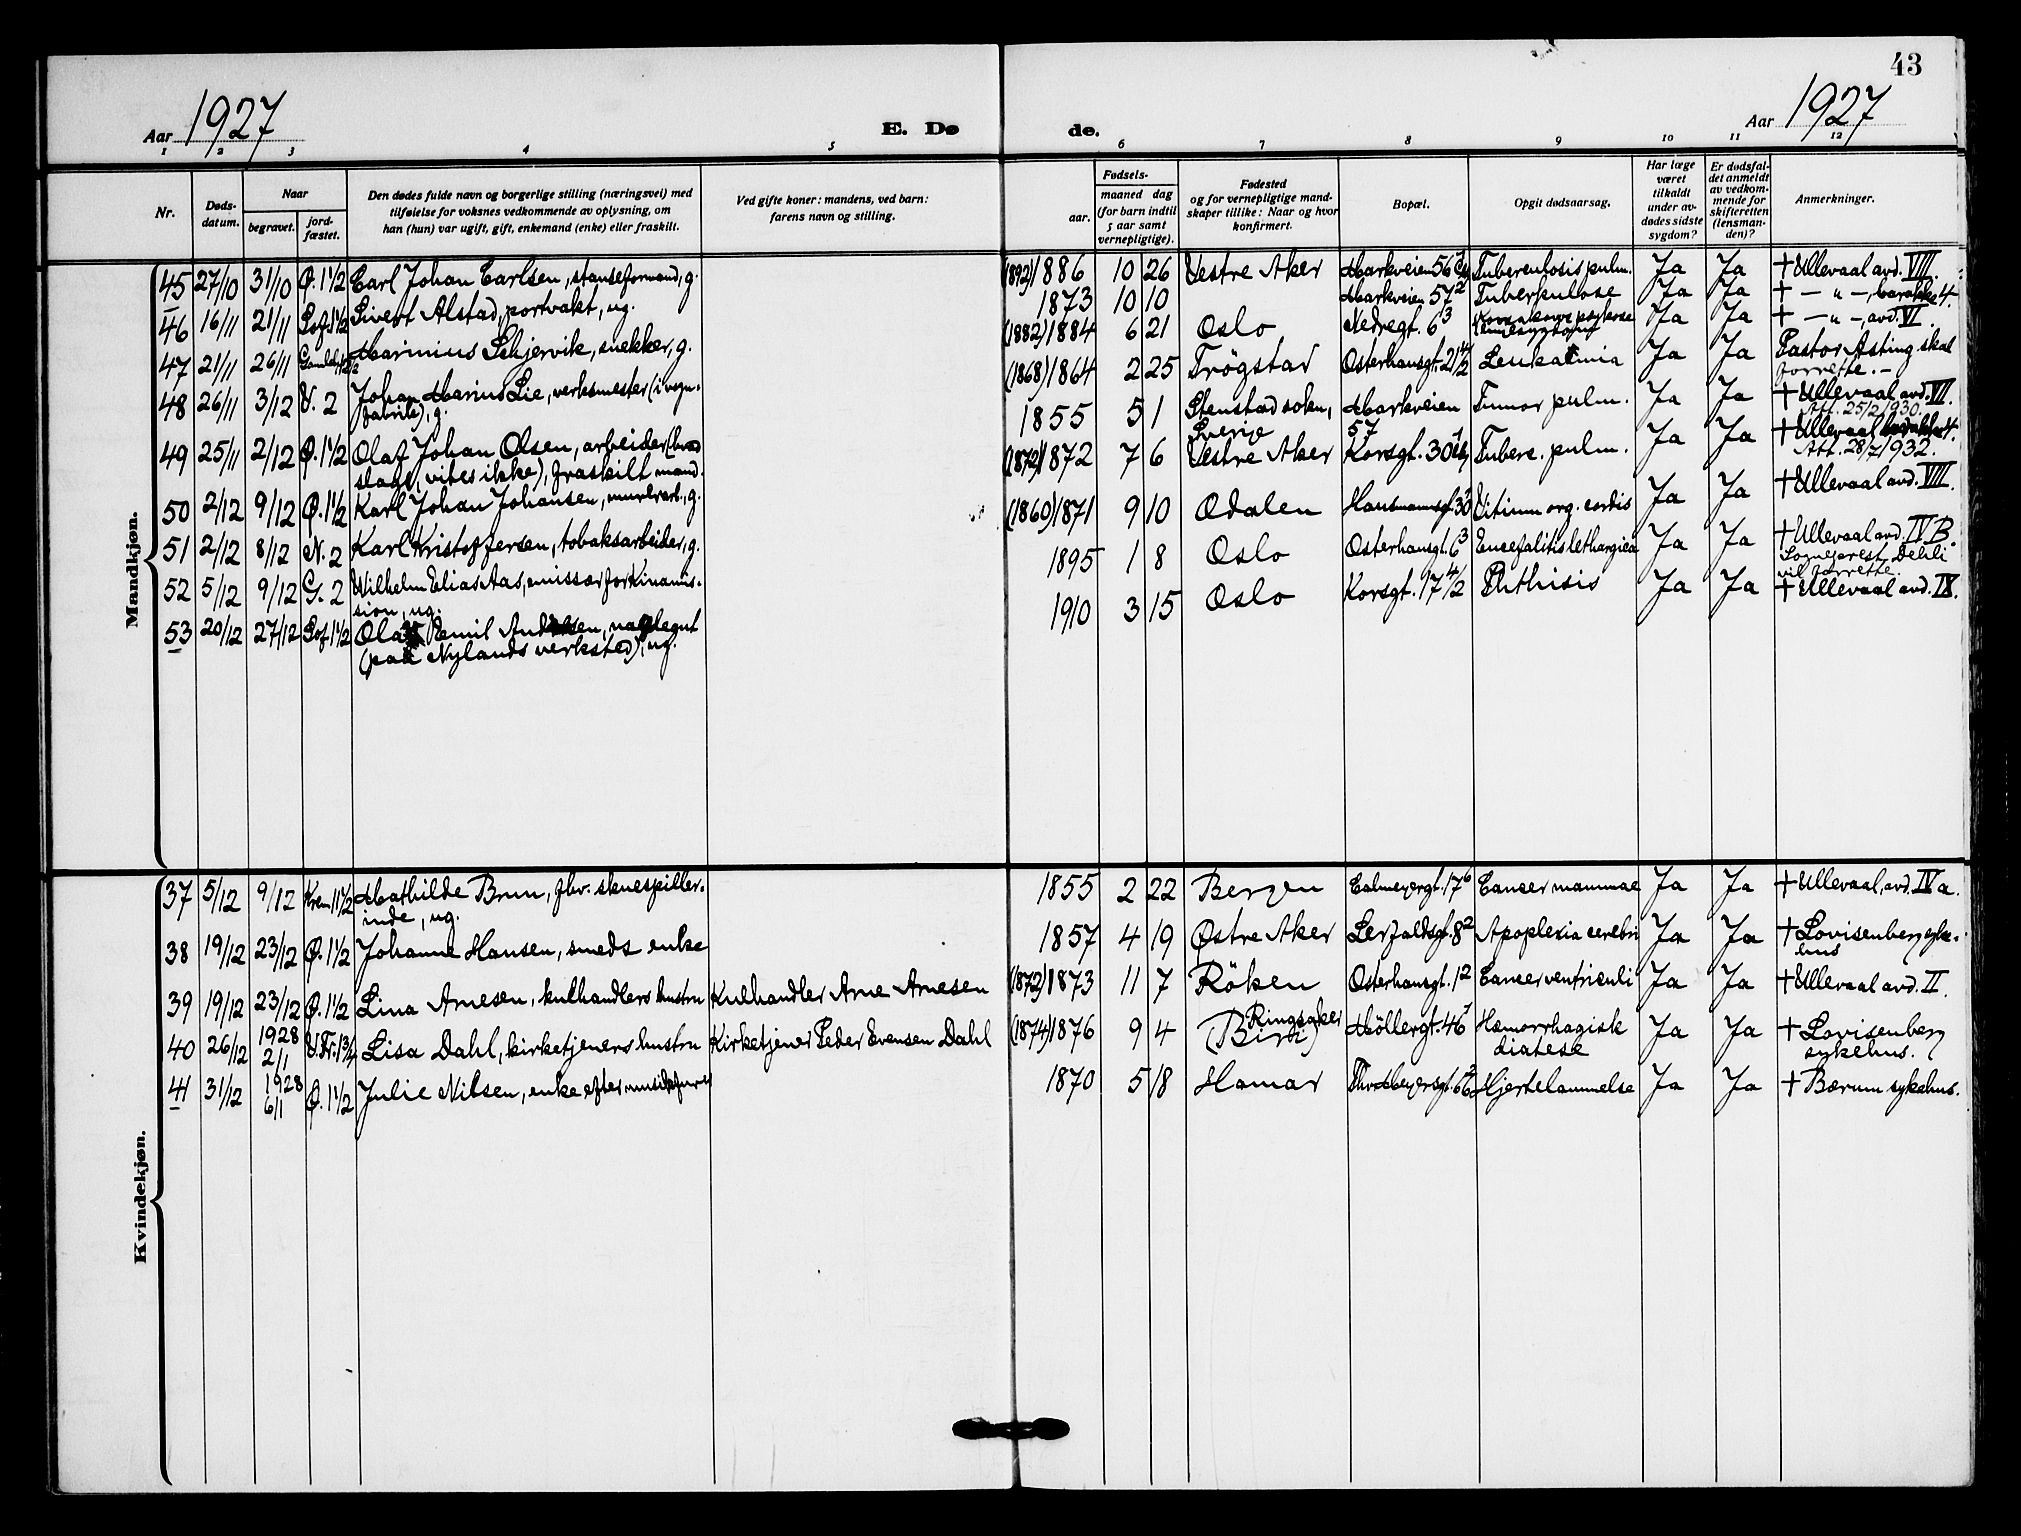 43
Aar 1927
E. Dø
de.
Aar 1927
1 2 3 4 5 6 7 8 9 10 11 12
Nr.
Døds-
datum.
Naar
begravet.
jord-
fæstet.
Den dødes fulde navn og borgerlige stilling (næringsvei) med
tilføielse for voksnes vedkommende av oplysning, om
han (hun) var ugift, gift, enkemand (enke) eller fraskilt.
Ved gifte koner: mandens, ved barn:
farens navn og stilling.
Fødsels-
aar.
maaned dag
(for barn indtil
5 aar samt
vernepligtige).
Fødested
og for vernepligtige mand-
skaper tillike: Naar og hvor
konfirmert.
Bopæl.
Opgit dødsaarsag.
Har læge
været
tilkaldt
under av-
dødes sidste
sygdom?
Er dødsfal-
det anmeldt
av vedkom-
mende for
skifteretten
(lensman-
den)?
Anmerkninger.
Mandkjøn.
45 27/10 31/10 Ø. 1 1/2 Carl Johan Carlsen, stanseformand, g. (1892) 1886 10 26 Vestre Aker Markveien 56 Tuberculosis pulm. Ja Ja + Ullevaal avd. VIII.
46 16/11 21/11 Sof. 1 1/2 Sivert Alstad, portvakt, ug. 1873 10 10 Markveien 57 2 Tuberkulose Ja Ja + — " —, barakke 4.
47 21/11 26/11 Marinius Schjervik, snekker, g. (1882) 1884 6 21 Oslo Nedregt. 6 3 Ja Ja + — " —, avd. VI.
48 26/11 3/12 V. 2 Johan Marius Lie, verksmester (i vogn-
fabrik), g. (1868) 1864 2 25 Trögstad Osterhausgt. 21 Leukæmia Ja Ja Pastor Asting skal
forrette. —
49 25/11 2/12 Ø. 1 1/2 Olaf Johan Olsen, arbeider (hvad
slags, vites ikke), fraskilt mand. 1855 5 1 Stenstad sokn,
Sverige Markveien
57 Tumor pulm. Ja Ja + Ullevaal avd. VII.
Att. 25/2 1930.
50 2/12 9/12 Ø. 1 1/2 Karl Johan Johansen, murerarb., g. (1872) 1872 7 6 Vestre Aker Korsgt. 30 Tuberc. pulm. Ja Ja + Ullevaal barakke 4.
Att. 28/7 1932.
51 2/12 8/12 N. 2 Karl Kristoffersen, tobaksarbeider, g. (1860) 1871 9 10 Odalen Hausmannsgt. 30 Vitium org. cordis Ja Ja + Ullevaal avd. VIII.
52 5/12 9/12 G. 2 Wilhelm Elias Aas, emissær for Kinamis-
sion, ug. 1895 1 8 Oslo Osterhausgt. 6 3 Encefalitis lethargica Ja Ja + Ullevaal avd. IV B.
Sogneprest Dehli
vil forrette.
53 20/12 27/12 Sof. 1 1/2 Olaf Emil Andersen, naglegut
(paa Nylands verksted), ug. 1910 3 15 Oslo Korsgt. 17 4/2 Phthisis Ja Ja + Ullevaal avd. IX.
Kvindekjøn.
37 5/12 9/12 Krem. 11 1/2 Mathilde Brun, fhv. skuespiller-
inde, ug. 1855 2 22 Bergen Calmeyergt. 17 6 Cancer mammae Ja Ja + Ullevaal, avd. IV a.
38 19/12 23/12 Ø. 1 1/2 Johanne Hansen, smeds enke 1857 4 19 Østre Aker Lerfaldsgt. 8 2 Apoplexia cerebri Ja Ja + Lovisenberg syke-
hus
39 19/12 23/12 Ø. 1 1/2 Lina Arnesen, kulhandlers hustru Kulhandler Arne Arnesen (1872) 1873 11 7 Röken Osterhausgt. 1 2 Cancer ventriculi Ja Ja + Ullevaal avd. II.
40 26/12 1928
2/1 V. Fr. 1 3/4 Lisa Dahl, kirketjeners hustru Kirketjener Peder Evensen Dahl (1874) 1876 9 4 Ringsaker
(Biri) Möllergt. 46 Hæmorrhagisk
diatese Ja Ja + Lovisenberg
sykehus.
41 31/12 1928
6/1 Ø. 1 1/2 Julie Nilsen, enke efter musikfurer 1870 5 18 Hamar Thv. Meyersgt. Hjertelammelse Ja Ja + Bærum sykehus.